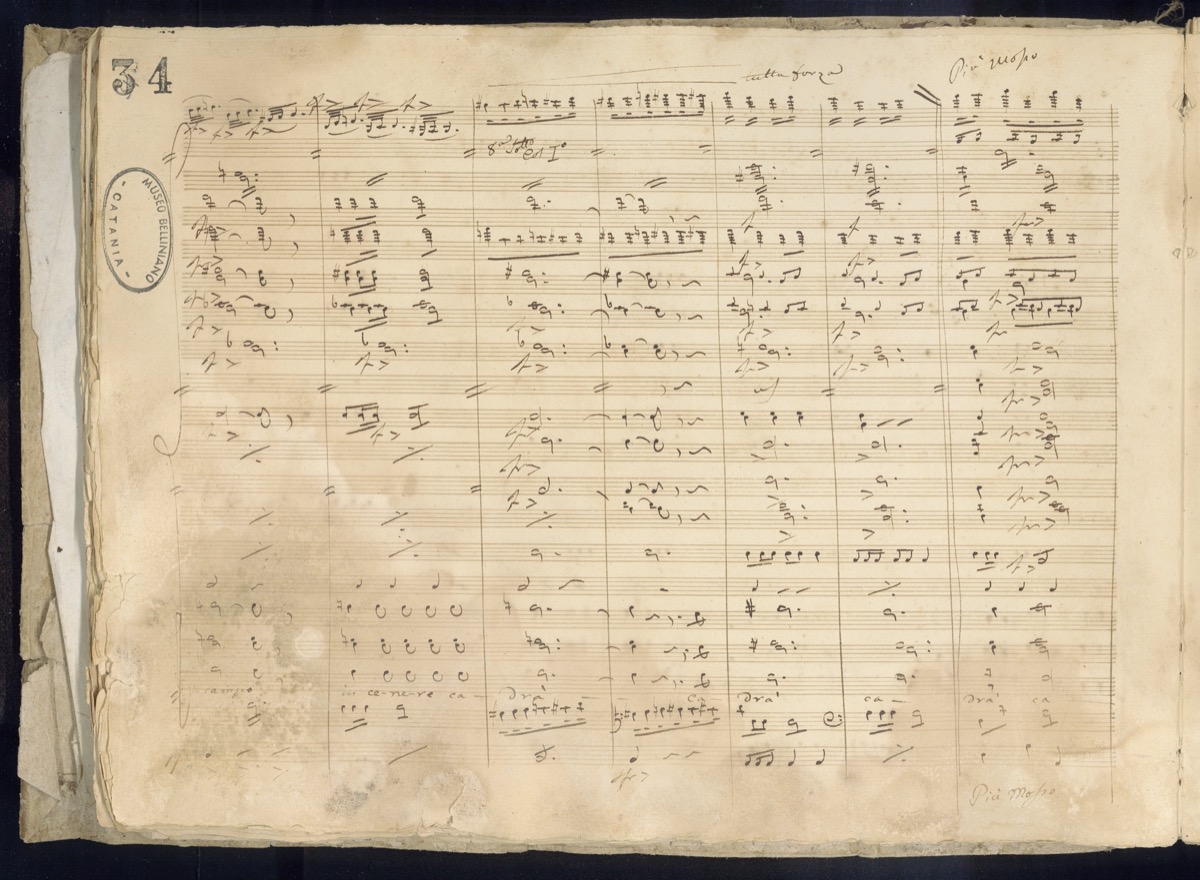 34
tutta forza
Più Mosso
8va sotto
col Iº
MUSEO BELLINIANO
- CATANIA -
campo in ce-ne-re ca- drà ca- drà ca- drà ca
Più Mosso